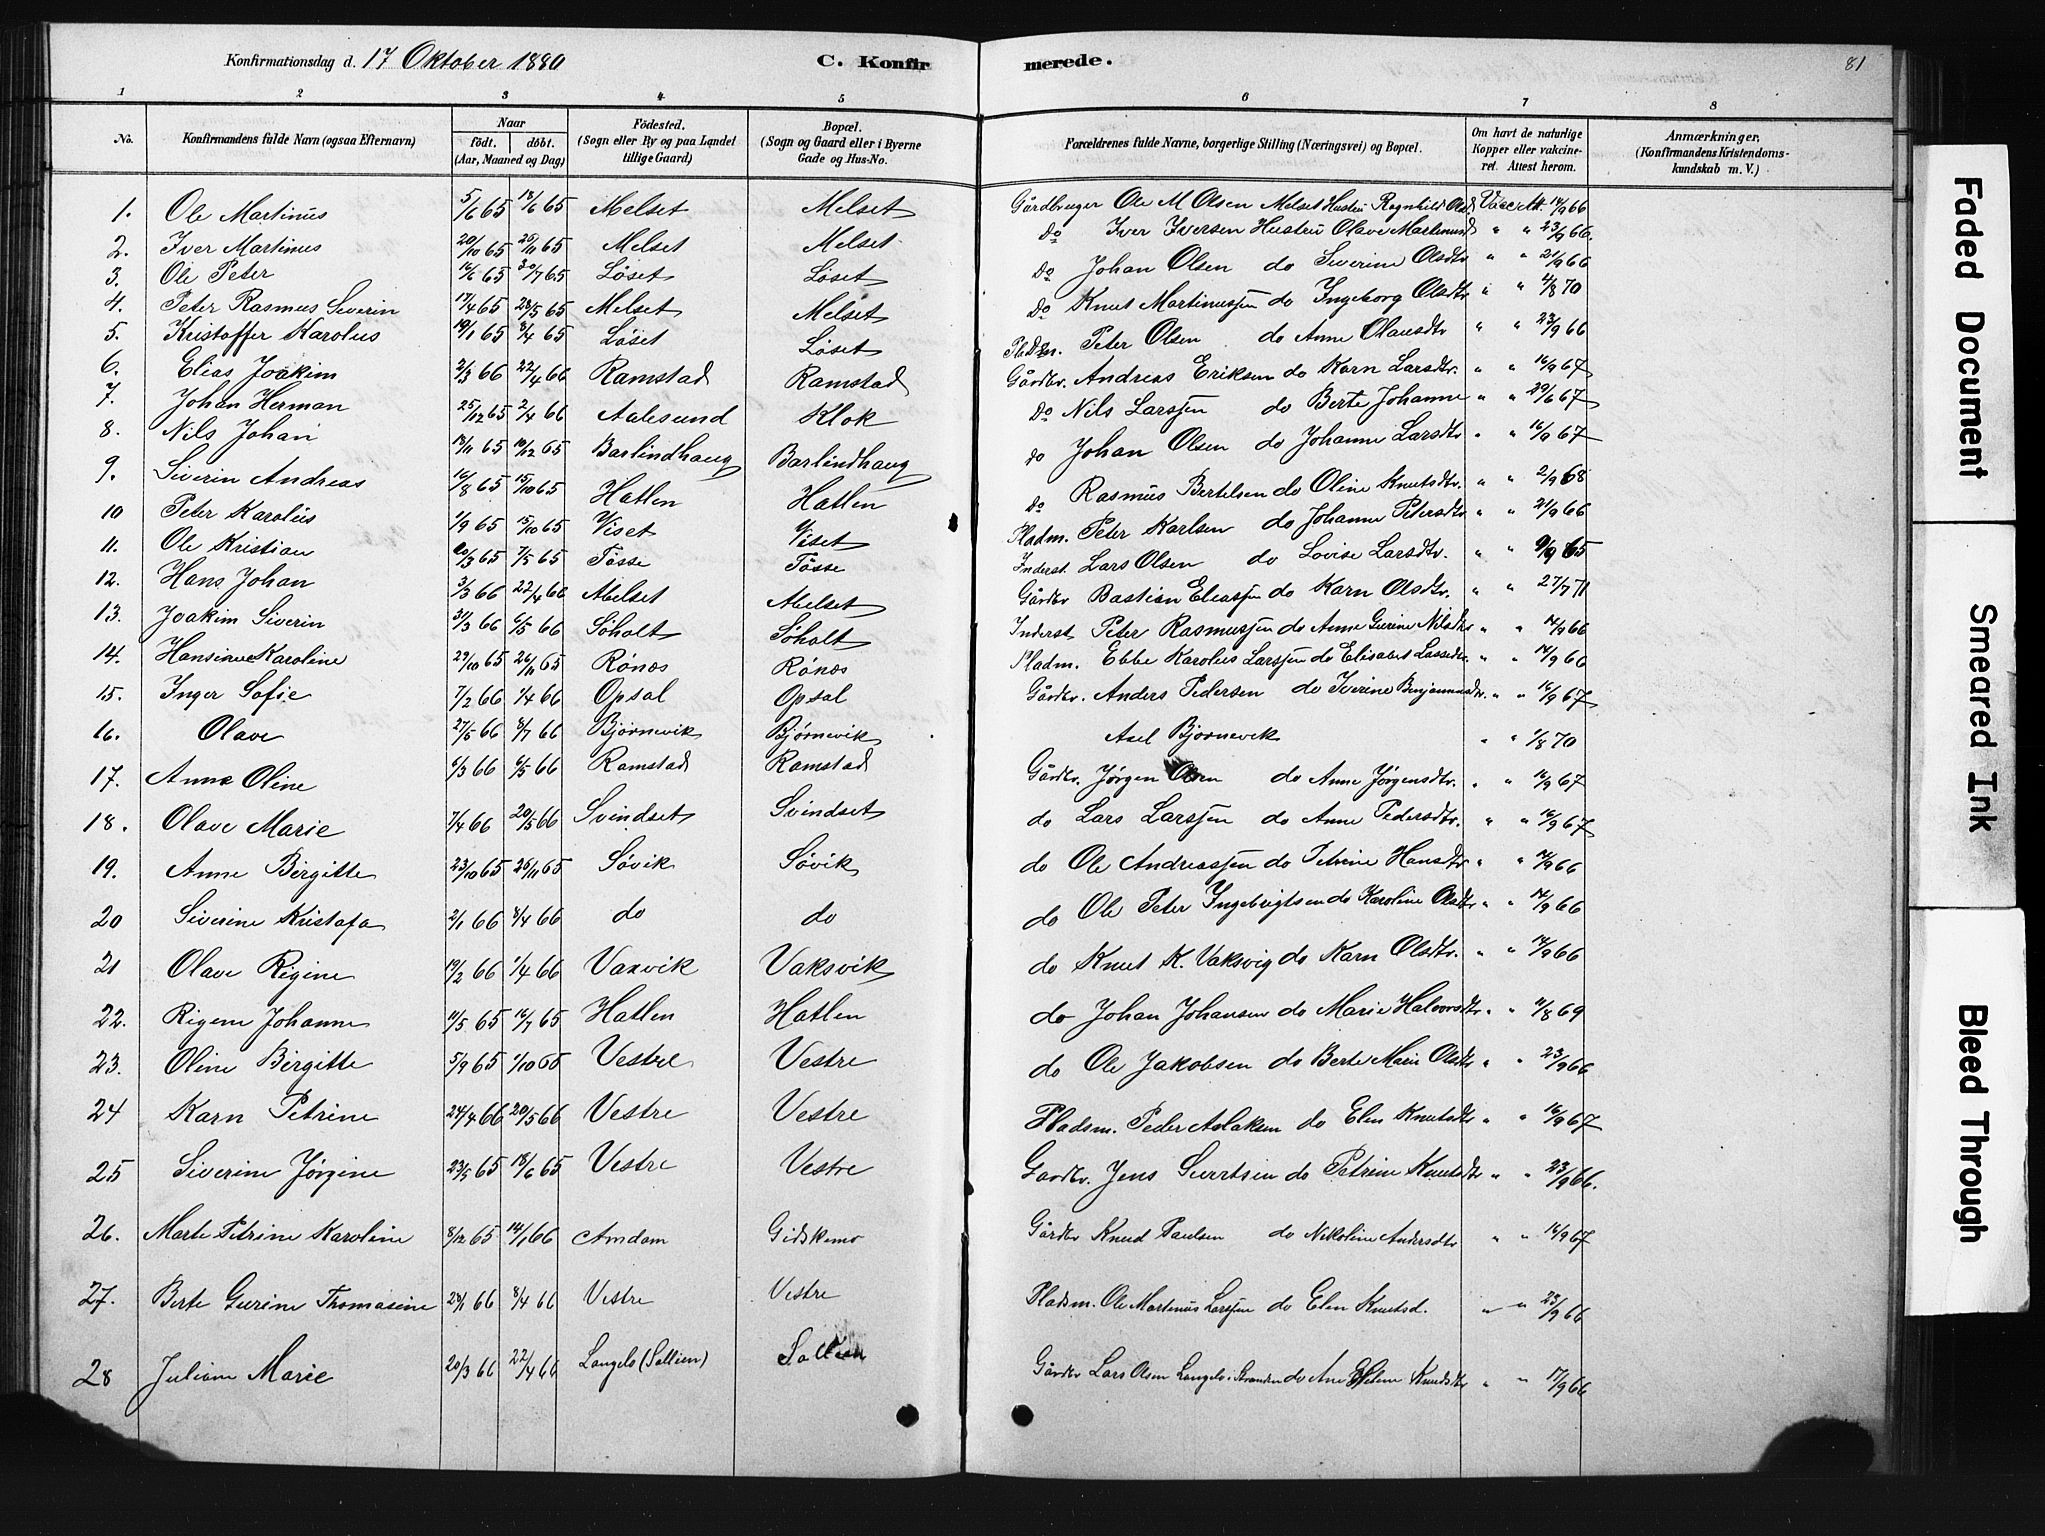 Konfirmationsdag d. 17 Oktober 1880 C. Konfirmerede. 81
1 2 3 4 5 6 7 8
No. Konfirmandens fulde Navn (ogsaa Efternavn) Naar født. døbt. (Aar, Maaned og Dag) Födested. (Sogn eller By og paa Landet tillige Gaard) Bopæl. (Sogn og Gaard eller i Byerne Gade og Hus-No. Forældrenes fulde Navne, borgerlige Stilling (Næringsvei) og Bopæl. Om havt de naturlige Kopper eller vakcineret. Attest herom. Anmærkninger, (Konfirmandens Kristendomskundskab m. V.)
1. Ole Martinus 5/6 65 18/6 65 Melset Melset Gårdbruger Ole M Olsen Melset Hustru Ragnhild Olsd. Vacc. Att. 14/9 66
2. Iver Martinus 20/10 65 26/11 65 Melset Melset Do Iver Iversen Hustru Olave Martinusd " " 23/9 66.
3. Ole Peter 16/6 65 30/7 65 Løset Løset Do Johan Olsen do Siverine Olsdtr " " 21/9 66
4. Peter Rasmus Severin 17/4 65 28/5 65 Melset Melset Do Knut Martinussen do Ingeborg Olsdtr " " 4/8 70
5. Kristoffer Karolus 19/1 65 8/4 65 Løset Løset Pladsm. Peter Olsen do Anne Olausdtr " " 23/9 66
6. Elias Joakim 2/3 66 22/4 66 Ramstad Ramstad Gårdbr. Andreas Eriksen do Karn Larsdtr. " " 16/9 67
7. Johan Herman 25/12 65 2/4 66 Aalesund Klok Do Nils Larssen do Berte Johanne " " 29/6 67
8. Nils Johan 18/11 65 10/12 65 Barlindhaug Barlindhaug do Johan Olsen do Johanne Larsdtr " " 16/9 67
9. Siverin Andreas 16/8 65 15/10 65 Hatlen Hatlen Do Rasmus Bertelsen do Oline Knutsdtr. " " 2/9 68
10 Peter Karolus 1/9 65 15/10 65 Viset Viset Pladm. Peter Karlsen do Johanne Petersdtr " " 21/9 66
11. Ole Kristian 20/3 65 7/5 65 Tøsse Tøsse Inderst. Lars Olsen do Lovise Larsdtr. " " 9/9 65
12. Hans Johan 3/3 66 22/4 66 Abelset Abelset Gårdbr Bastian Eliassen do Karn Olsdtr. " " 27/7 71
13. Joakim Siverin 31/3 66 6/5 66 Søholt Søholt Inderst Peter Rasmussen do Anne Gurine Nilsdtr " " 14/9 66
14. Hansine Karoline 29/10 65 26/11 65 Rønæs Rønæs Pladm. Ebbe Karolus Larssen do Elisabet Lassedtr. " " 14/9 66
15. Inger Sofie 7/2 66 1/4 66 Opsal Opsal Gårdbr. Anders Pedersen do Iverine Benjaminsdr. " " 16/9 67
16. Olave 27/5 66 8/7 66 Bjørnevik Bjørnevik Axel Bjørnevik " " 1/8 70
17. Anne Oline 6/3 66 6/5 66 Ramstad Ramstad Gårdbr. Jørgen Olsen do Anne Jørgensdtr. " " 16/9 67
18. Olave Marie 7/4 66 20/5 66 Svindset Svindset do Lars Larssen do Anne Pedersdtr. " " 16/9 67
19. Anne Birgitte 23/10 65 26/11 65 Søvik Søvik do Ole Andreassen do Petrine Hansdtr " " 14/9 66
20 Siverine Kristofa 2/1 66 8/4 66 do do do Ole Peter Ingebrigtsen do Karoline Olsdtr " " 14/9 66
21 Olave Rigine 19/2 66 1/4 66 Vaxvik Vaksvik do Knut K. Vaksvig do Karn Olsdtr. " " 14/9 66
22. Rigine Johanne 11/5 65 16/7 65 Hatlen Hatlen do Johan Johansen do Marie Halvorsdtr. " 11/8 69
23. Oline Birgitte 5/9 65 1/10 65 Vestre Vestre do Ole Jakobsen do Berte Marie Olsdtr " " 23/9 66
24 Karn Petrine 24/4 66 20/5 66 Vestre Vestre Pladsm. Peder Aslaksen do Elen Knutsdtr " " 16/9 67
25 Siverine Jørgine 23/5 65 18/6 65 Vestre Vestre Gardbr. Jens Sivertsen do Petrine Knutsdtr " " 23/9 66.
26. Marte Petrine Karoline 8/12 65 14/1 66 Amdam Gidskemo Gårdbr Knud Paulsen do Nikoline Andersdtr " " 16/9 67
27. Berte Gurine Thomasine 28/1 66 8/4 66 Vestre Vestre Pladsm. Ole Martinus Larssen do Elen Knutsd. " " 23/9 66
28 Juliane Marie 20/3 66 22/4 66 Langelo (Sollien) Sollien Gårdbr Lars Olsen Langelo, Stranden do Ane Helene Knudsdtr " " 17/9 66
Faded Document
Smeared Ink
Bleed Through